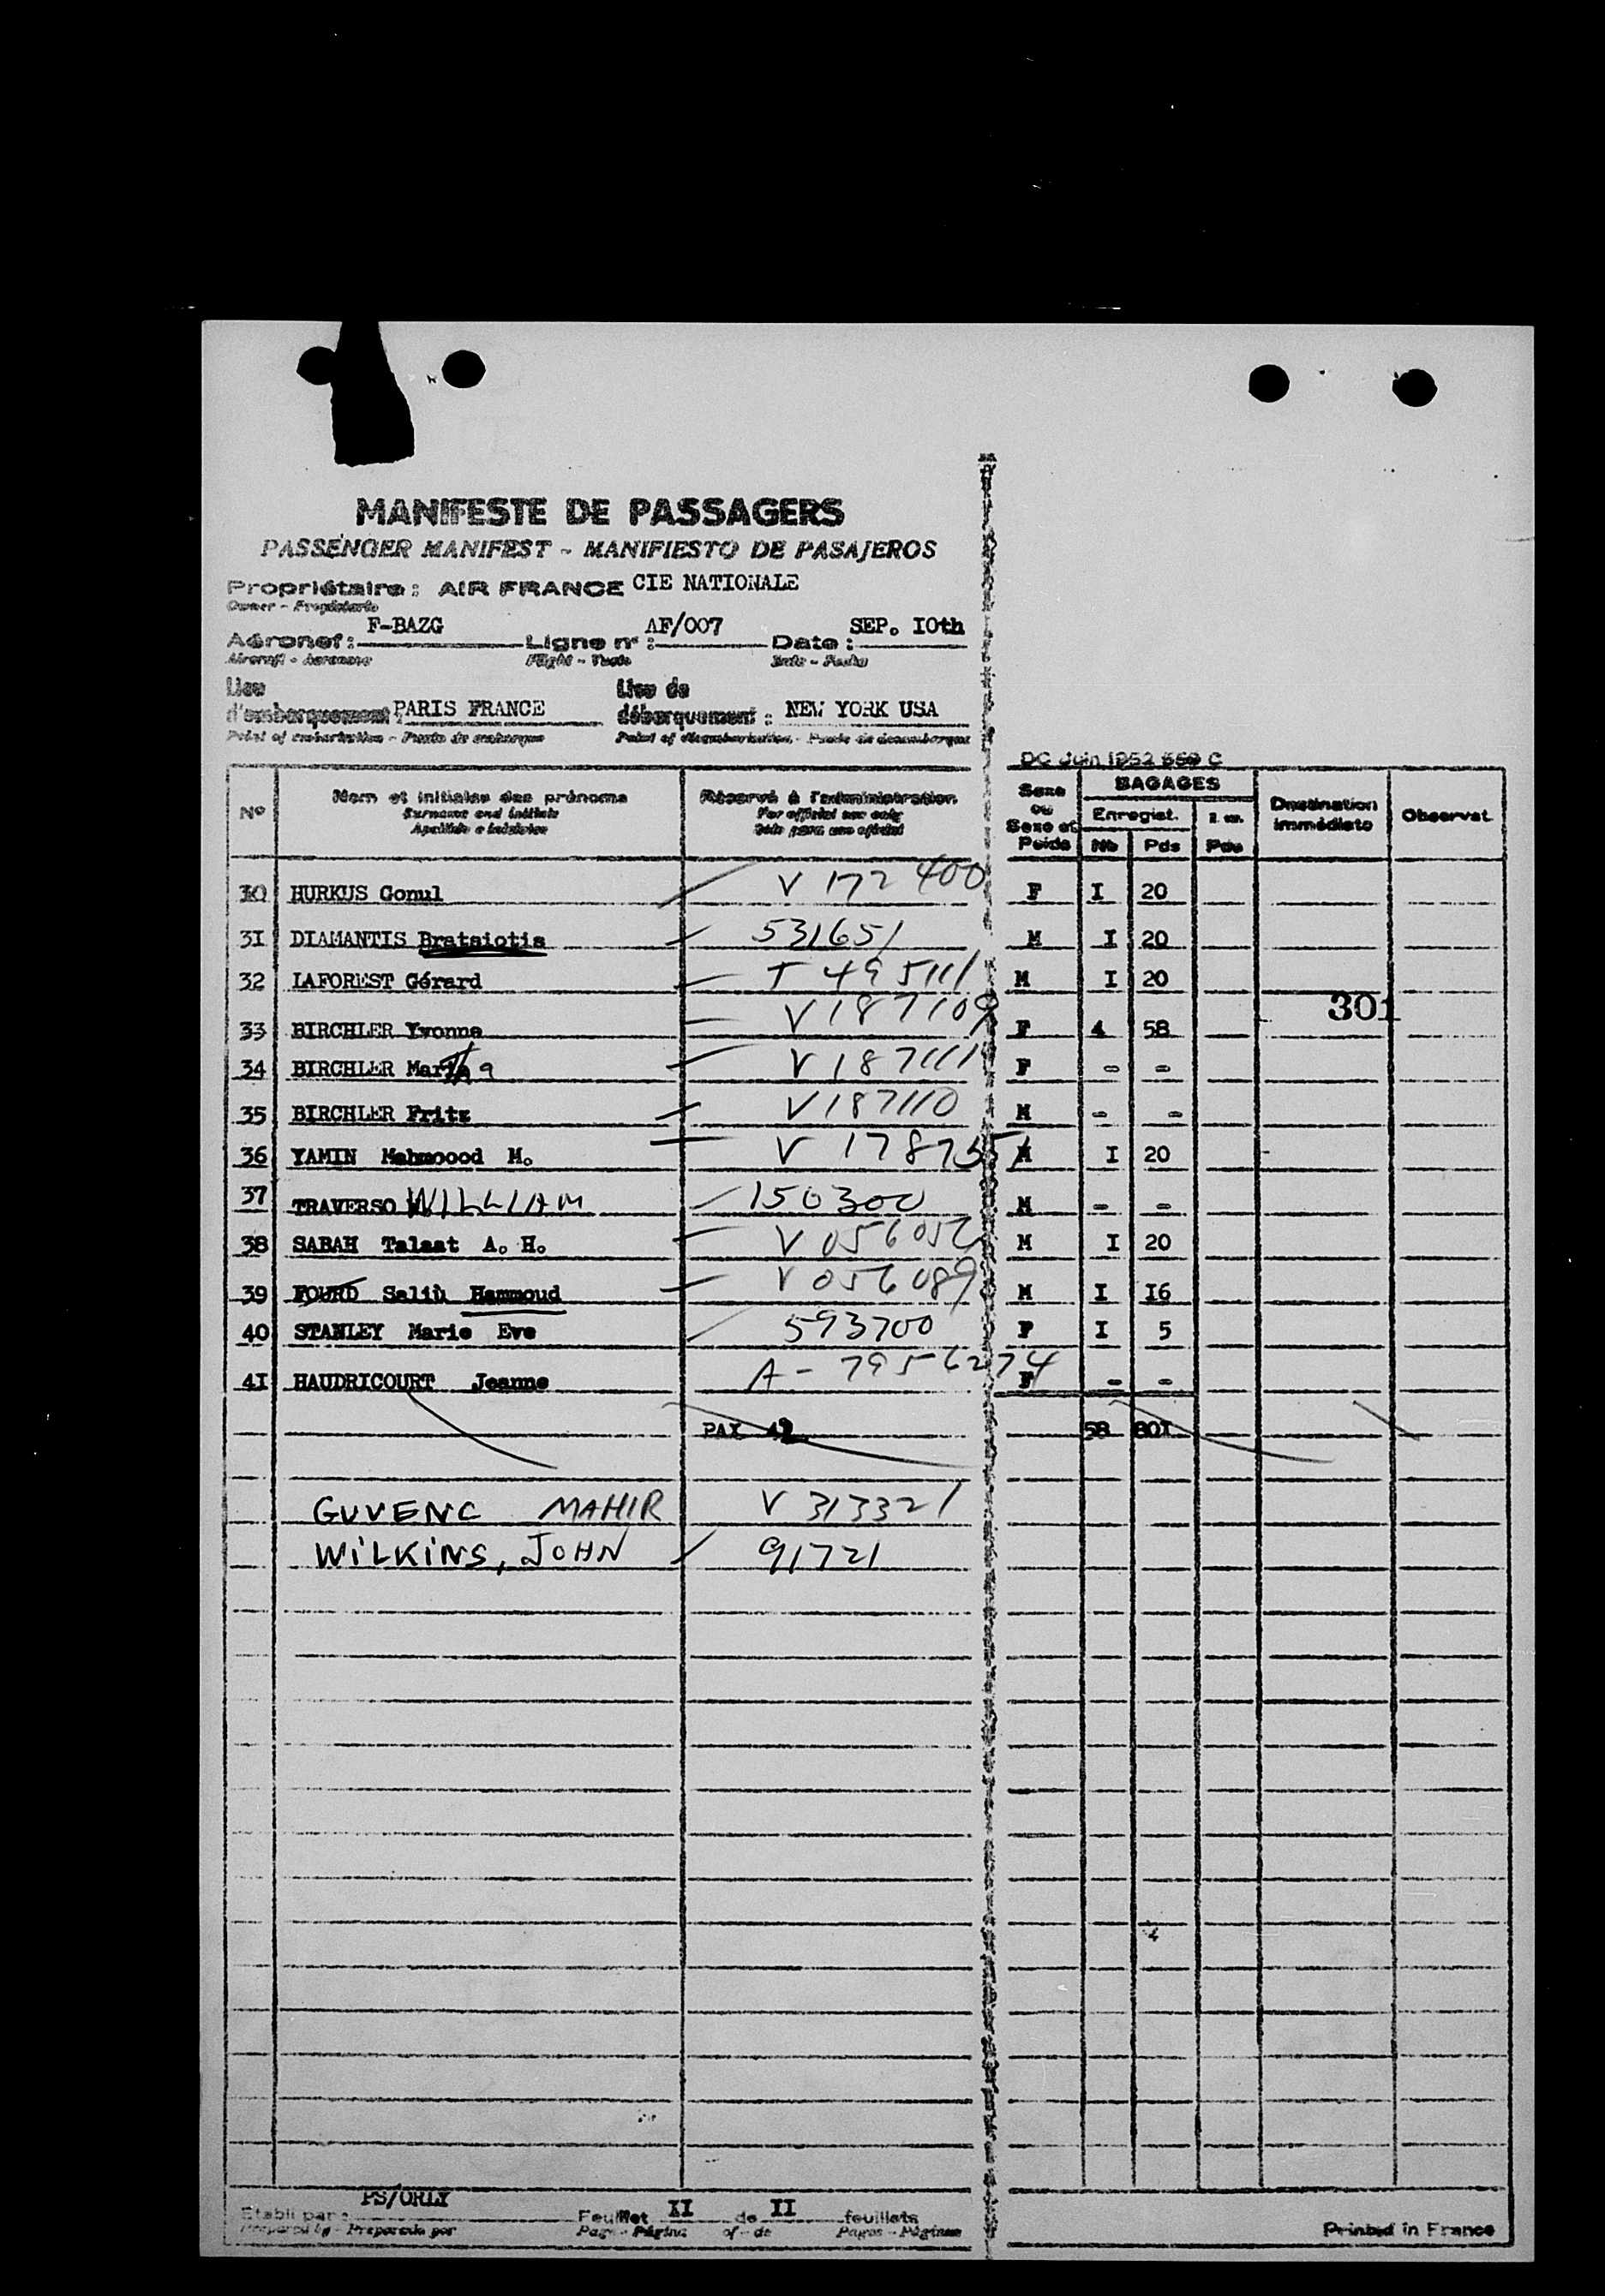 MANIFESTE DE PASSAGERS
PASSENGER MANIFEST - MANIFIESTO DE PASAJEROS
Propriétaire : AIR FRANCE CIE NATIONALE
Owner - Propietario
Aéronef : F-BAZG Ligne nº : AF/007 Date : SEP. IOth
Aircraft - Aeronave Flight - Date - Fecha
Lieu d'embarquement : PARIS FRANCE Lieu de débarquement : NEW YORK USA
Point of embarkation - Punto de embarque Point of disembarkation - Punto de desembarque
DC Juin 1952 C
Nº Nom et initiales des prénoms Réservé à l'administration Sexe ou Sexe et Poids BAGAGES Enregist. Nb Pds Pds Destination immédiate Observat.
Surname and initials For official use only
Apellido e iniciales Sólo para uso oficial
30 HURKUS Gonul V 172400 F I 20
3I DIAMANTIS Brataiotis 531651 M I 20
32 LAFOREST Gérard T 495111 M I 20
301
33 BIRCHLER Yvonne V 187109 F 4 58
34 BIRCHLER Martha V 187111 F - -
35 BIRCHLER Fritz V187110 M - -
36 YAMIN Mahmoood M. V 178755 M I 20
37 TRAVERSO WILLIAM 150300 M - -
38 SABAH Talaat A. H. V 056052 M I 20
39 FOURD Salih Hammoud V 056089 M I I6
40 STANLEY Marie Eve 593700 F I 5
4I HAUDRICOURT Jeanne A-7956274 F - -
PAX 58 80I
GUVENC MAHIR V 313321
WILKINS, JOHN 91721
Etabli par : PS/ORLY Feuillet II de II feuillets
Prepared by - Preparado por Page - Página of - de Pages - Páginas
Printed in France